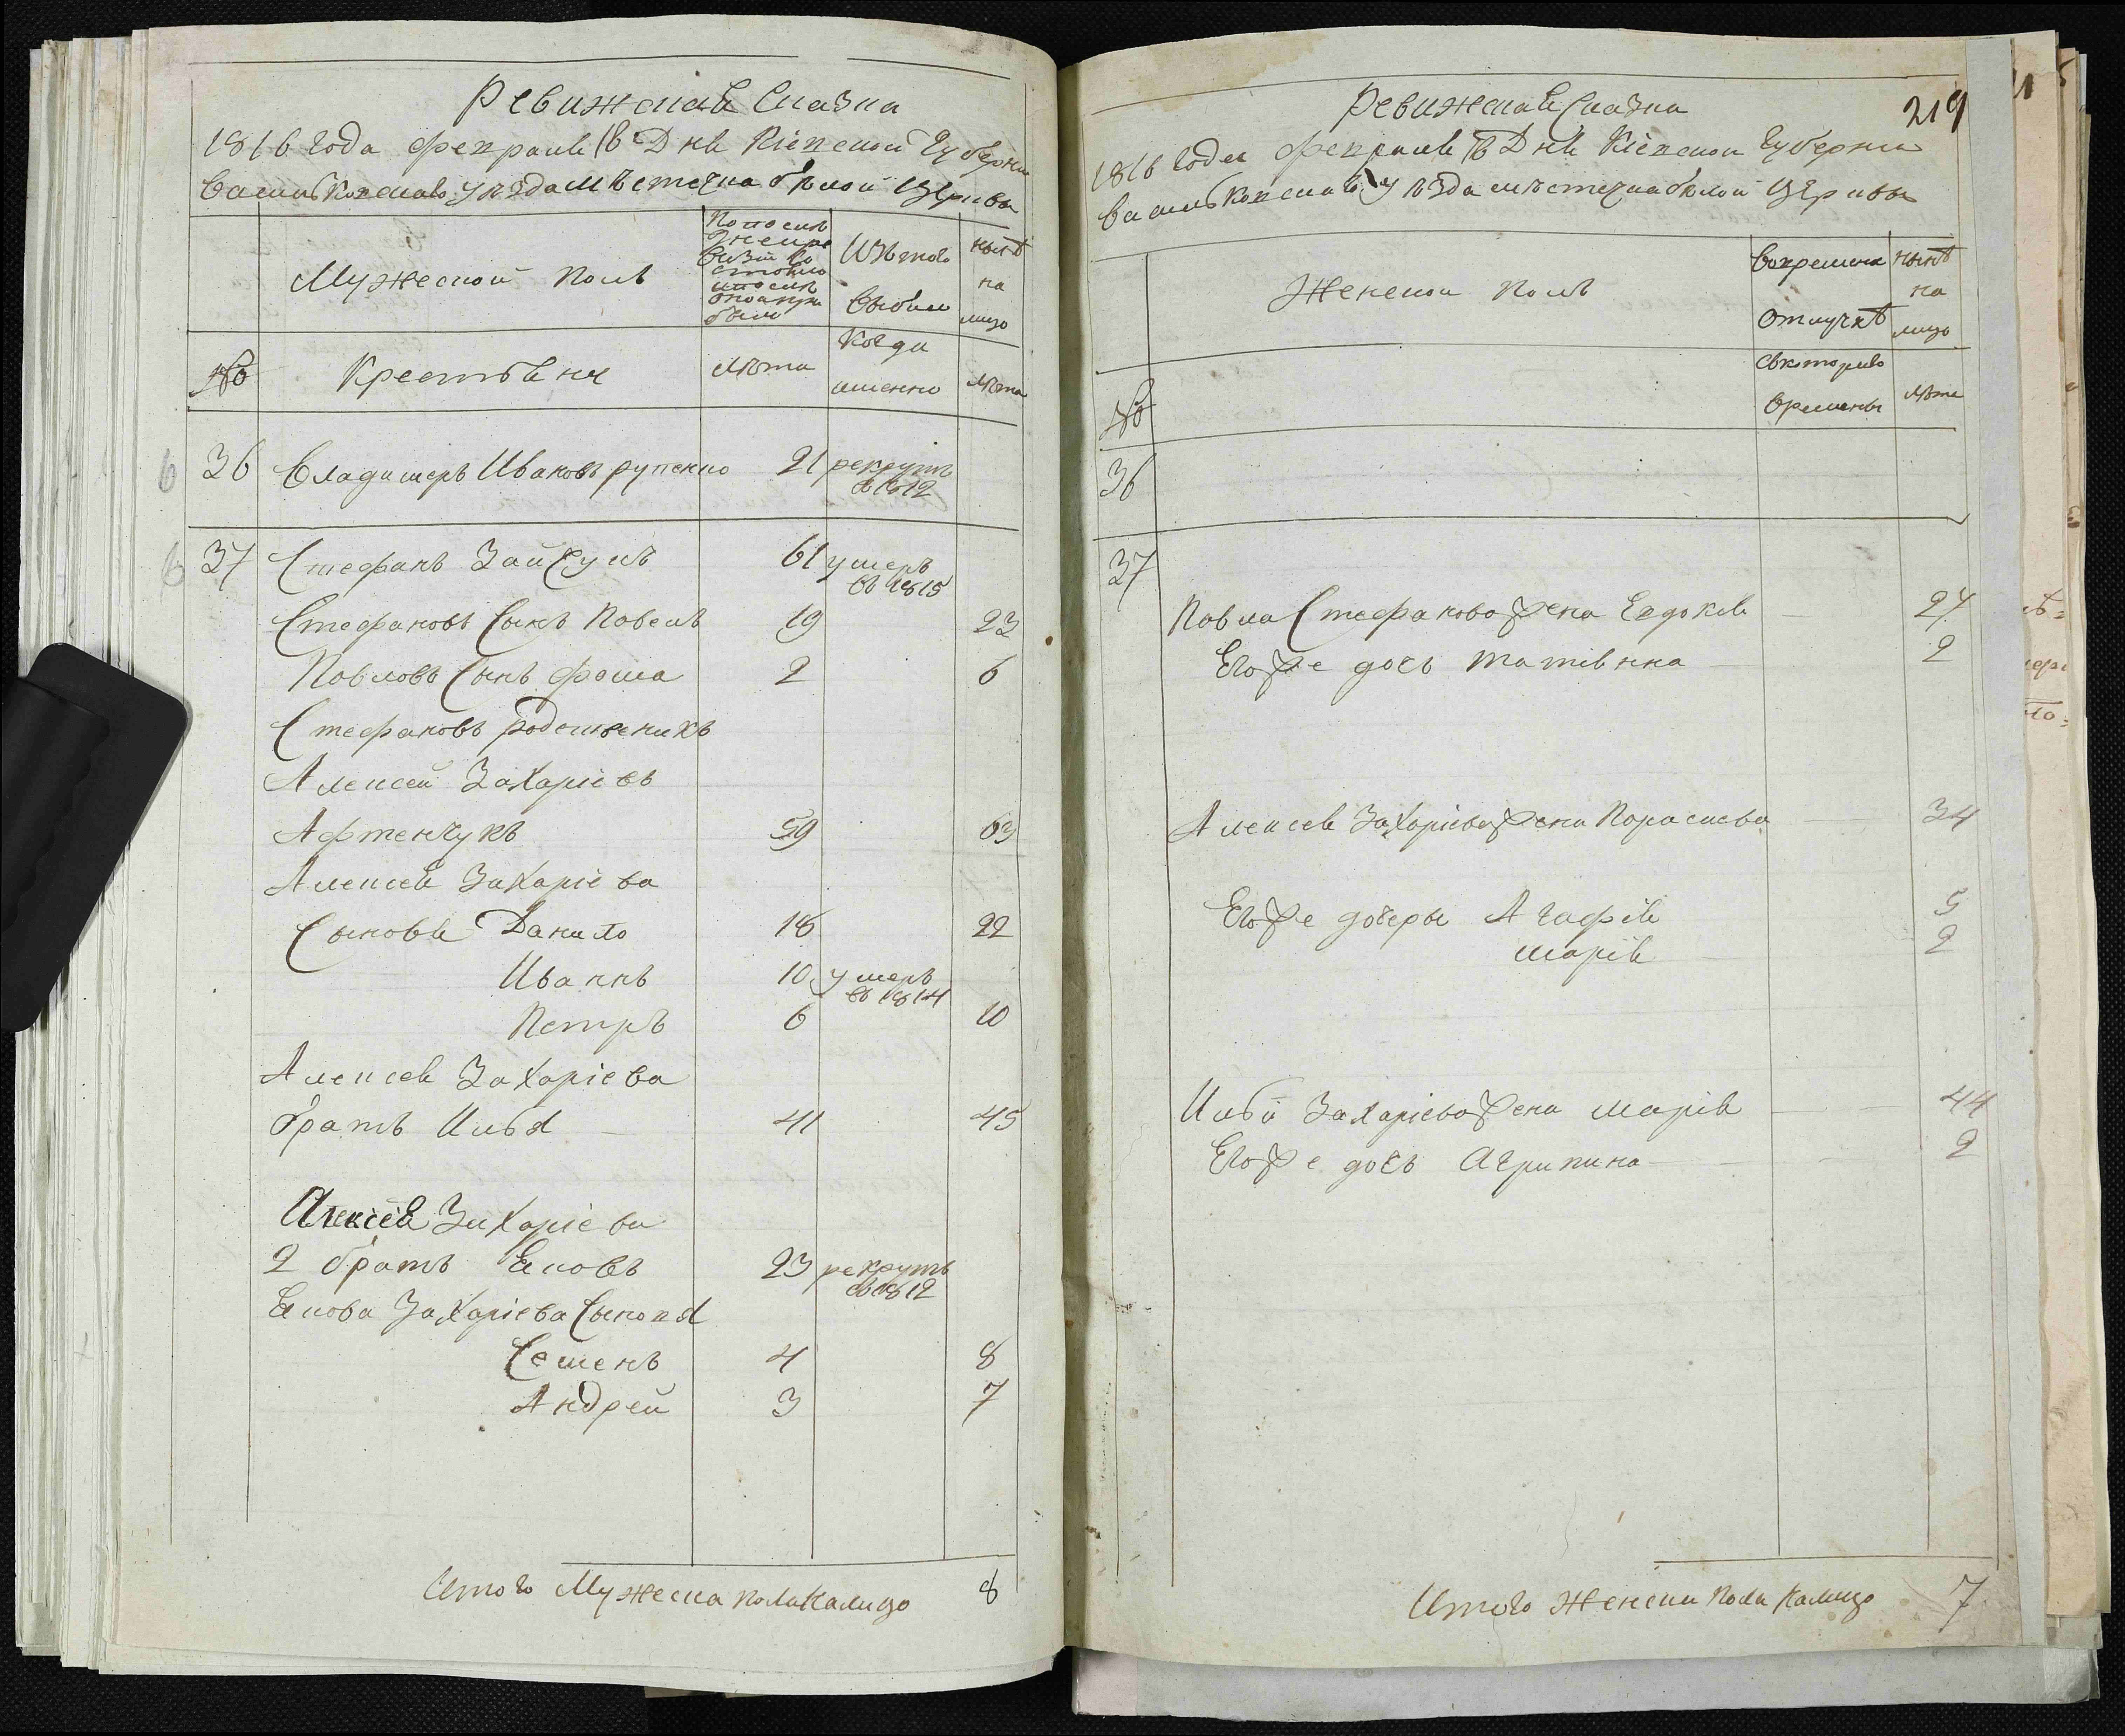 Ревижская Сказка
1816 года февраля 18 Дня Кіевской Губерніи
Васильковскаго уѣзда мѣстечка бѣлой Церквы
Мужеской полъ
По последней ревизіи состояло и после оной прибыло
Изъ того выбыло
нынѣ на лицо
№
Крестьяне
лѣта
Когда именно
лѣта
36 Владимеръ Ивановъ рупенко 21 рекрутъ
въ 1812
37 Стефанъ Зайсулъ 61 умеръ
въ 1815
Стефановъ Сынъ Павелъ 19 23
Павловъ Сынъ фома 2 6
Стефановъ родственикъ
Алексей Захаріевъ
Афтенчукъ 59 63
Алексея Захаріева
Сыновья Данило 18 22
Иваннъ 10 умеръ
въ 1814
Петръ 6 10
Алексея Захаріева
братъ Илья 41 45
Алексея Захаріева
2 братъ Яковъ 23 рекрутъ
въ 1812
Якова Захаріева Сыновя
Семенъ 4 8
Андрей 3 7
Итого Мужеска пола налицо 8
219
Ревижская Сказка
1816 года февраля 18 Дня Кіевской Губерніи
Васильковскаго уѣзда мѣстечка бѣлой Церквы
Женской полъ
Вовременной отлучкѣ
нынѣ на лицо
№
Скотораго времены
лѣта
36
37
Павла Стефанова жена Евдокія 27
Его же дочь татіянна 2
Алексея Захаріева жена Параскева 34
Его же дочеры Агафія 5
марія 2
Ильи Захаріева жена марія 44
Его же дочь Агрипина 2
Итого Женска пола налицо 7